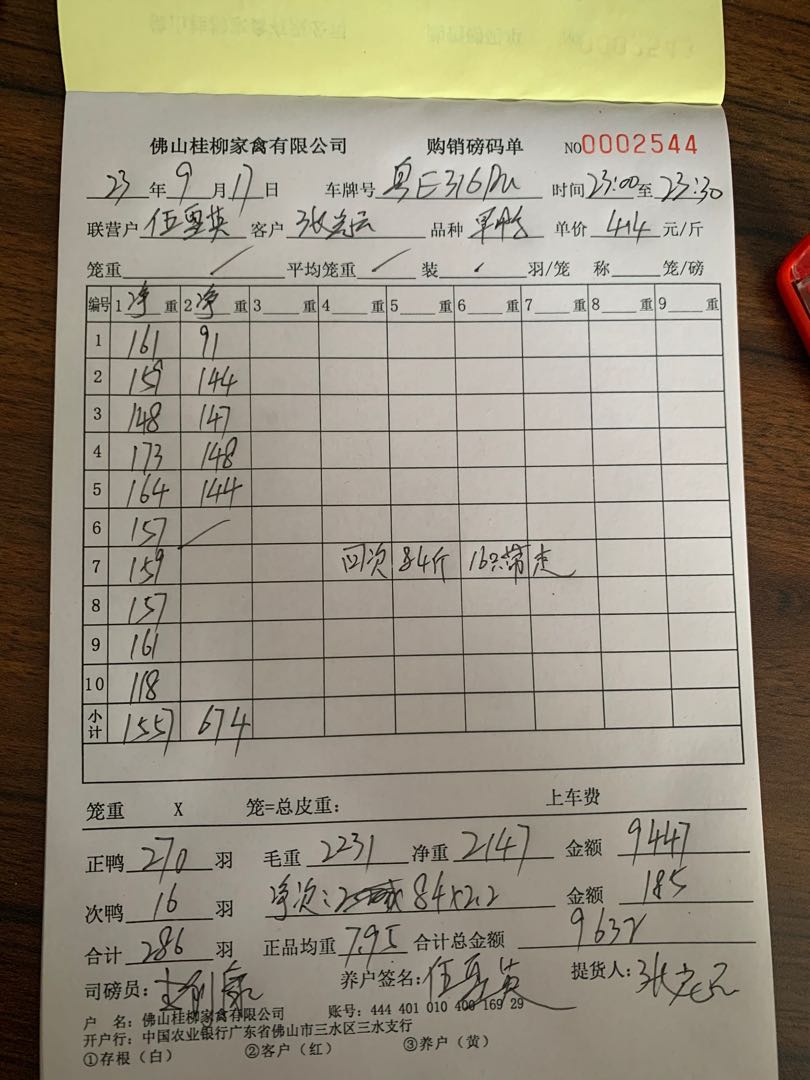 佛山桂柳家禽有限公司 购销磅码单 NO0002544
23年9月17日 车牌号 粤E316 时间23:00至23:30
联营户 伍 英 客户 张 品种 单价 4.4 元/斤
笼重 平均笼重 装 羽/笼 称 笼/磅
编号 1净重 2净重 3 重 4 重 5 重 6 重 7 重 8 重 9 重
1 161 91
2 159 144
3 148 147
4 173 148
5 164 144
6 157
7 159 回次 84斤 16只带走
8 157
9 161
10 118
小计 1557 674
笼重 X 笼=总皮重: 上车费
正鸭 270 羽 毛重 2231 净重 2147 金额 9447
次鸭 16 羽 净次: 84x2.2 金额 185
合计 286 羽 正品均重 7.95 合计总金额 9632
司磅员: 养户签名: 伍 英 提货人: 张
户 名: 佛山桂柳家禽有限公司 账号: 444 401 010 400 169 29
开户行: 中国农业银行广东省佛山市三水区三水支行
①存根(白) ②客户(红) ③养户(黄)